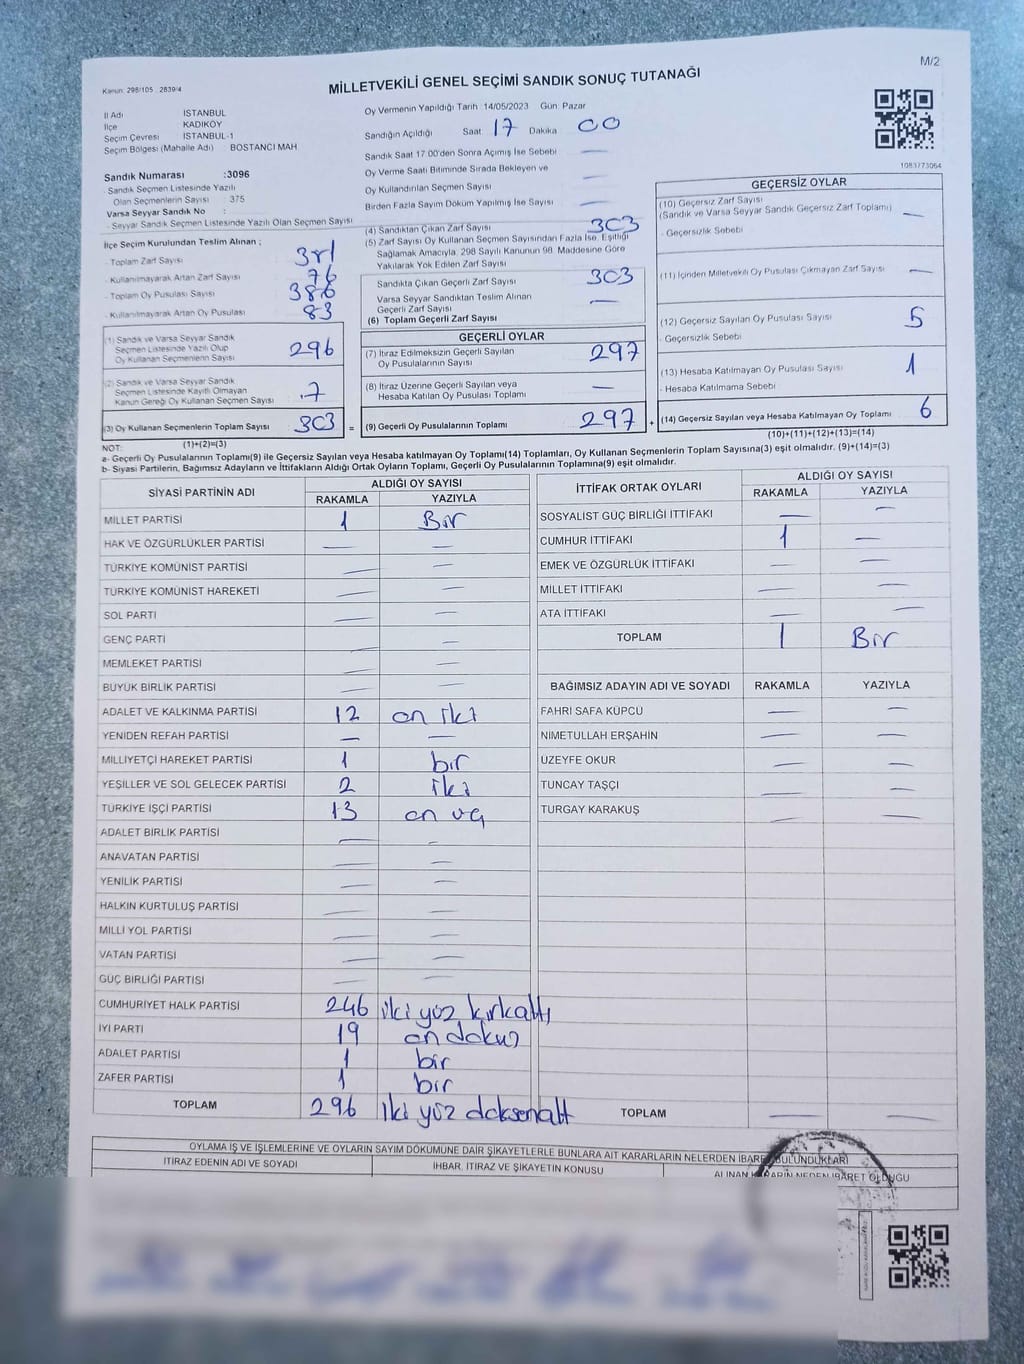 M/2
Kanun: 298/105 , 2839/4
MİLLETVEKİLİ GENEL SEÇİMİ SANDIK SONUÇ TUTANAĞI
İl Adı İSTANBUL
İlçe KADIKÖY
Seçim Çevresi İSTANBUL-1
Seçim Bölgesi (Mahalle Adı) BOSTANCI MAH
Sandık Numarası :3096
Sandık Seçmen Listesinde Yazılı
Olan Seçmenlerin Sayısı 375
Varsa Seyyar Sandık No :
- Seyyar Sandık Seçmen Listesinde Yazılı Olan Seçmen Sayısı
İlçe Seçim Kurulundan Teslim Alınan ;
- Toplam Zarf Sayısı
- Kullanılmayarak Artan Zarf Sayısı 76
- Toplam Oy Pusulası Sayısı 386
- Kullanılmayarak Artan Oy Pusulası 83
(1) Sandık ve Varsa Seyyar Sandık
Seçmen Listesinde Yazılı Olup
Oy Kullanan Seçmenlerin Sayısı 296
(2) Sandık ve Varsa Seyyar Sandık
Seçmen Listesinde Kayıtlı Olmayan
Kanun Gereği Oy Kullanan Seçmen Sayısı 7
(3) Oy Kullanan Seçmenlerin Toplam Sayısı 303 =
(1)+(2)=(3)
Oy Vermenin Yapıldığı Tarih 14/05/2023 Gün Pazar
Sandığın Açıldığı Saat 17 Dakika 00
Sandık Saat 17:00'den Sonra Açılmış İse Sebebi —
Oy Verme Saati Bitiminde Sırada Bekleyen ve
Oy Kullandırılan Seçmen Sayısı —
Birden Fazla Sayım Döküm Yapılmış İse Sayısı —
(4) Sandıktan Çıkan Zarf Sayısı 303
(5) Zarf Sayısı Oy Kullanan Seçmen Sayısından Fazla İse, Eşitliği
Sağlamak Amacıyla, 298 Sayılı Kanunun 98. Maddesine Göre
Yakılarak Yok Edilen Zarf Sayısı
Sandıkta Çıkan Geçerli Zarf Sayısı 303
Varsa Seyyar Sandıktan Teslim Alınan
Geçerli Zarf Sayısı —
(6) Toplam Geçerli Zarf Sayısı
GEÇERLİ OYLAR
(7) İtiraz Edilmeksizin Geçerli Sayılan
Oy Pusulalarının Sayısı 297
(8) İtiraz Üzerine Geçerli Sayılan veya
Hesaba Katılan Oy Pusulası Toplamı —
(9) Geçerli Oy Pusulalarının Toplamı 297 +
1083773064
GEÇERSİZ OYLAR
(10) Geçersiz Zarf Sayısı
(Sandık ve Varsa Seyyar Sandık Geçersiz Zarf Toplamı) —
- Geçersizlik Sebebi
(11) İçinden Milletvekili Oy Pusulası Çıkmayan Zarf Sayısı —
(12) Geçersiz Sayılan Oy Pusulası Sayısı 5
- Geçersizlik Sebebi
(13) Hesaba Katılmayan Oy Pusulası Sayısı 1
- Hesaba Katılmama Sebebi
(14) Geçersiz Sayılan veya Hesaba Katılmayan Oy Toplamı 6
(10)+(11)+(12)+(13)=(14)
NOT:
a- Geçerli Oy Pusulalarının Toplamı(9) ile Geçersiz Sayılan veya Hesaba katılmayan Oy Toplamı(14) Toplamları, Oy Kullanan Seçmenlerin Toplam Sayısına(3) eşit olmalıdır. (9)+(14)=(3)
b- Siyasi Partilerin, Bağımsız Adayların ve İttifakların Aldığı Ortak Oyların Toplamı, Geçerli Oy Pusulalarının Toplamına(9) eşit olmalıdır.
SİYASİ PARTİNİN ADI ALDIĞI OY SAYISI
RAKAMLA YAZIYLA
MİLLET PARTİSİ 1 Bir
HAK VE ÖZGÜRLÜKLER PARTİSİ — —
TÜRKİYE KOMÜNİST PARTİSİ — —
TÜRKİYE KOMÜNİST HAREKETİ — —
SOL PARTİ — —
GENÇ PARTİ — —
MEMLEKET PARTİSİ — —
BÜYÜK BİRLİK PARTİSİ — —
ADALET VE KALKINMA PARTİSİ 12 on iki
YENİDEN REFAH PARTİSİ — —
MİLLİYETÇİ HAREKET PARTİSİ 1 bir
YEŞİLLER VE SOL GELECEK PARTİSİ 2 iki
TÜRKİYE İŞÇİ PARTİSİ 13 on üç
ADALET BİRLİK PARTİSİ — —
ANAVATAN PARTİSİ — —
YENİLİK PARTİSİ — —
HALKIN KURTULUŞ PARTİSİ — —
MİLLİ YOL PARTİSİ — —
VATAN PARTİSİ — —
GÜÇ BİRLİĞİ PARTİSİ — —
CUMHURİYET HALK PARTİSİ 246 iki yüz kırkaltı
İYİ PARTİ 19 on dokuz
ADALET PARTİSİ 1 bir
ZAFER PARTİSİ 1 bir
TOPLAM 296 iki yüz doksenaltı
İTTİFAK ORTAK OYLARI ALDIĞI OY SAYISI
RAKAMLA YAZIYLA
SOSYALİST GÜÇ BİRLİĞİ İTTİFAKI — —
CUMHUR İTTİFAKI 1 —
EMEK VE ÖZGÜRLÜK İTTİFAKI — —
MİLLET İTTİFAKI — —
ATA İTTİFAKI — —
TOPLAM 1 Bir
BAĞIMSIZ ADAYIN ADI VE SOYADI RAKAMLA YAZIYLA
FAHRİ SAFA KÜPCÜ — —
NİMETULLAH ERŞAHİN — —
ÜZEYFE OKUR — —
TUNCAY TAŞÇI — —
TURGAY KARAKUŞ — —
TOPLAM — —
OYLAMA İŞ VE İŞLEMLERİNE VE OYLARIN SAYIM DÖKÜMÜNE DAİR ŞİKAYETLERLE BUNLARA AİT KARARLARIN NELERDEN İBARET BULUNDUKLARI
İTİRAZ EDENİN ADI VE SOYADI İHBAR, İTİRAZ VE ŞİKAYETİN KONUSU ALINAN KARARIN NEDEN İBARET OLDUĞU